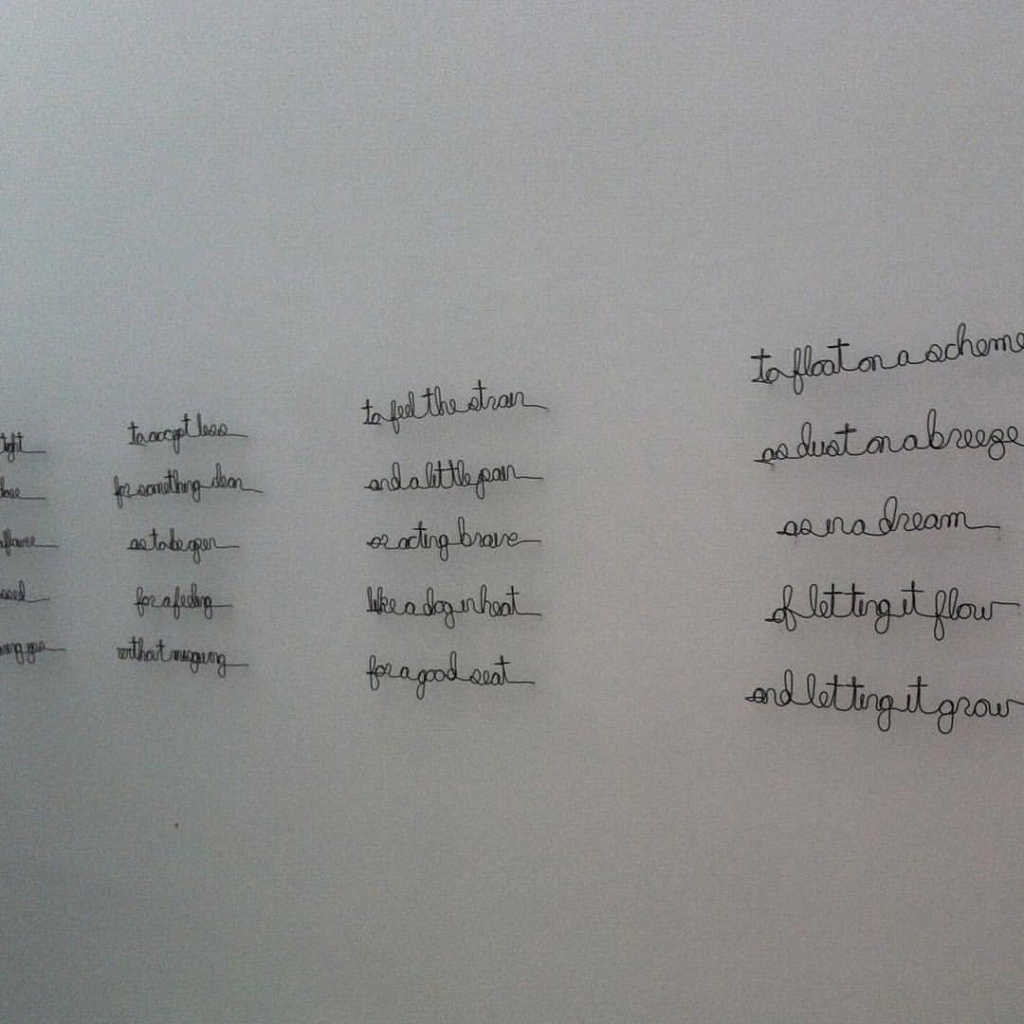 to accept less
for something clean
as to be open
for a feeling
without misgiving
to feel the strain
and a little pain
or acting brave
like a dog in heat
for a good seat
to float on a scheme
as dust on a breeze
as in a dream
of letting it flow
and letting it grow